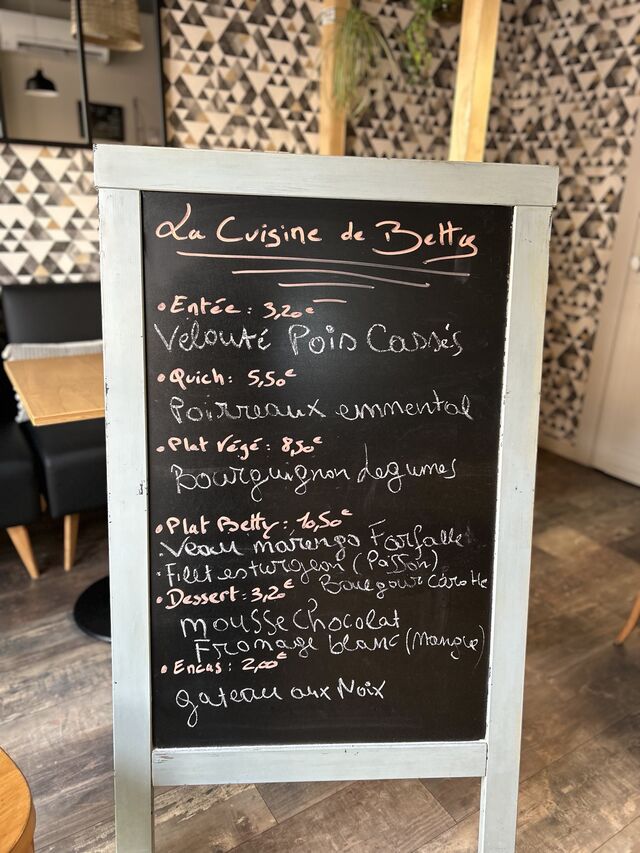 La Cuisine de Betty
• Entée : 3,20€
Velouté Pois Cassés
• Quich : 5,50€
Poirreaux emmental
• Plat Végé : 8,50€
Bourguignon Legumes
• Plat Betty : 10,50€
. Veau marengo Farfalle
. Filet esturgeon (Poisson)
Boulgour Carotte
• Dessert : 3,20€
mousse Chocolat
Fromage blanc (Mangue)
• Encas : 2,00€
gateau aux Noix